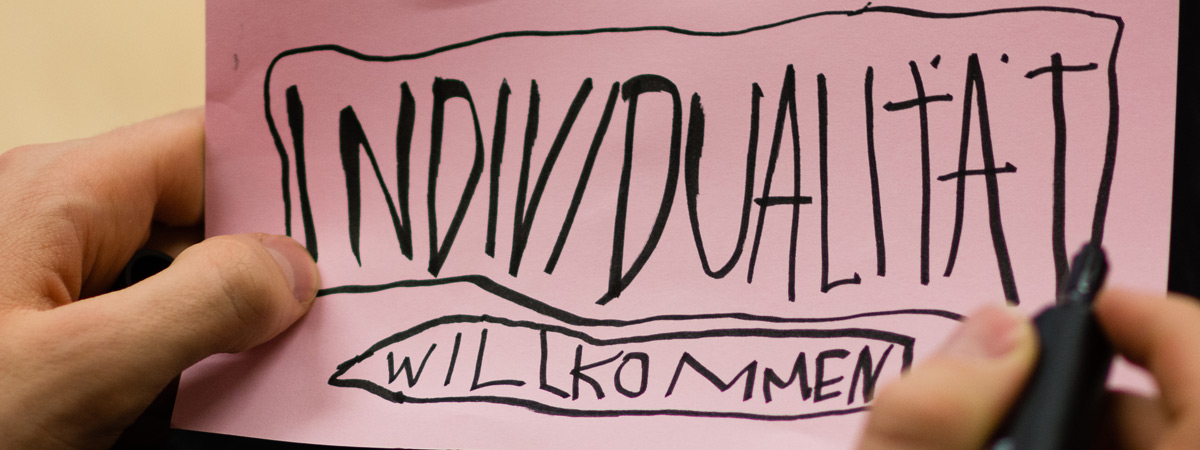 INDIVIDUALITÄT
WILLKOMMEN